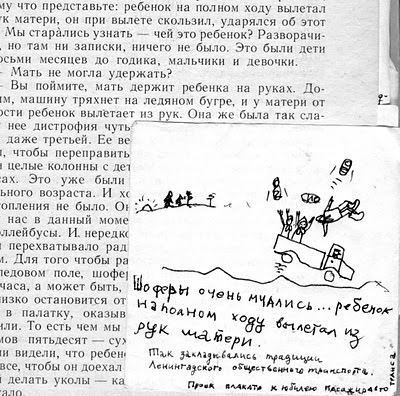 му что представьте: ребенок на полном ходу вылетал
ук матери, он при вылете скользил, ударялся об этот
Мы старались узнать — чей это ребенок? Разворачи-
, но там ни записки, ничего не было. Это были дети
осьми месяцев до годика, мальчики и девочки.
— Мать не могла удержать?
— Вы поймите, мать держит ребенка на руках. До-
им, машину тряхнет на ледяном бугре, и у матери от
ости ребенок вылетает из рук. Она же была так сла-
нее дистрофия чуть
даже третьей. Ее ве
, чтобы переправить
и целые колонны с дет
сах. Это уже были
льного возраста. И хо
опления не было. Он
нас в данный моме
оллейбусы. И. нередко
перехватывало рад
м. Для того чтобы ра
ледовом поле, шофе
часа, а может быть,
изко остановится от
в палатку, оказыв
или. То есть чем мы
мов пятьдесят — сух
ни видели, что ребен
все, чтобы он доехал
й делать уколы — ка
ыстало
Шоферы очень мчались... ребенок
на полном ходу вылетал из
рук матери.
Так закладывались традиции
Ленинградского общественного транспорта.
Проек плаката к юбилею Пассажиравто
транса